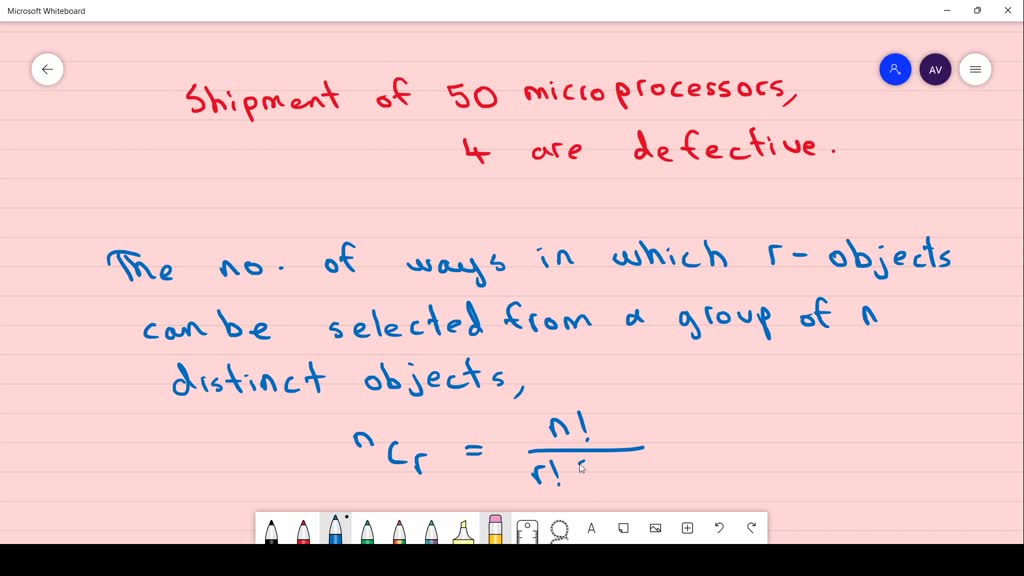 Microsoft Whiteboard
AV
Shipment of 50 microprocessors,
4 are defective.
The no. of ways in which r-objects
can be selected from a group of n
distinct objects,
nCr = n!
r!
A